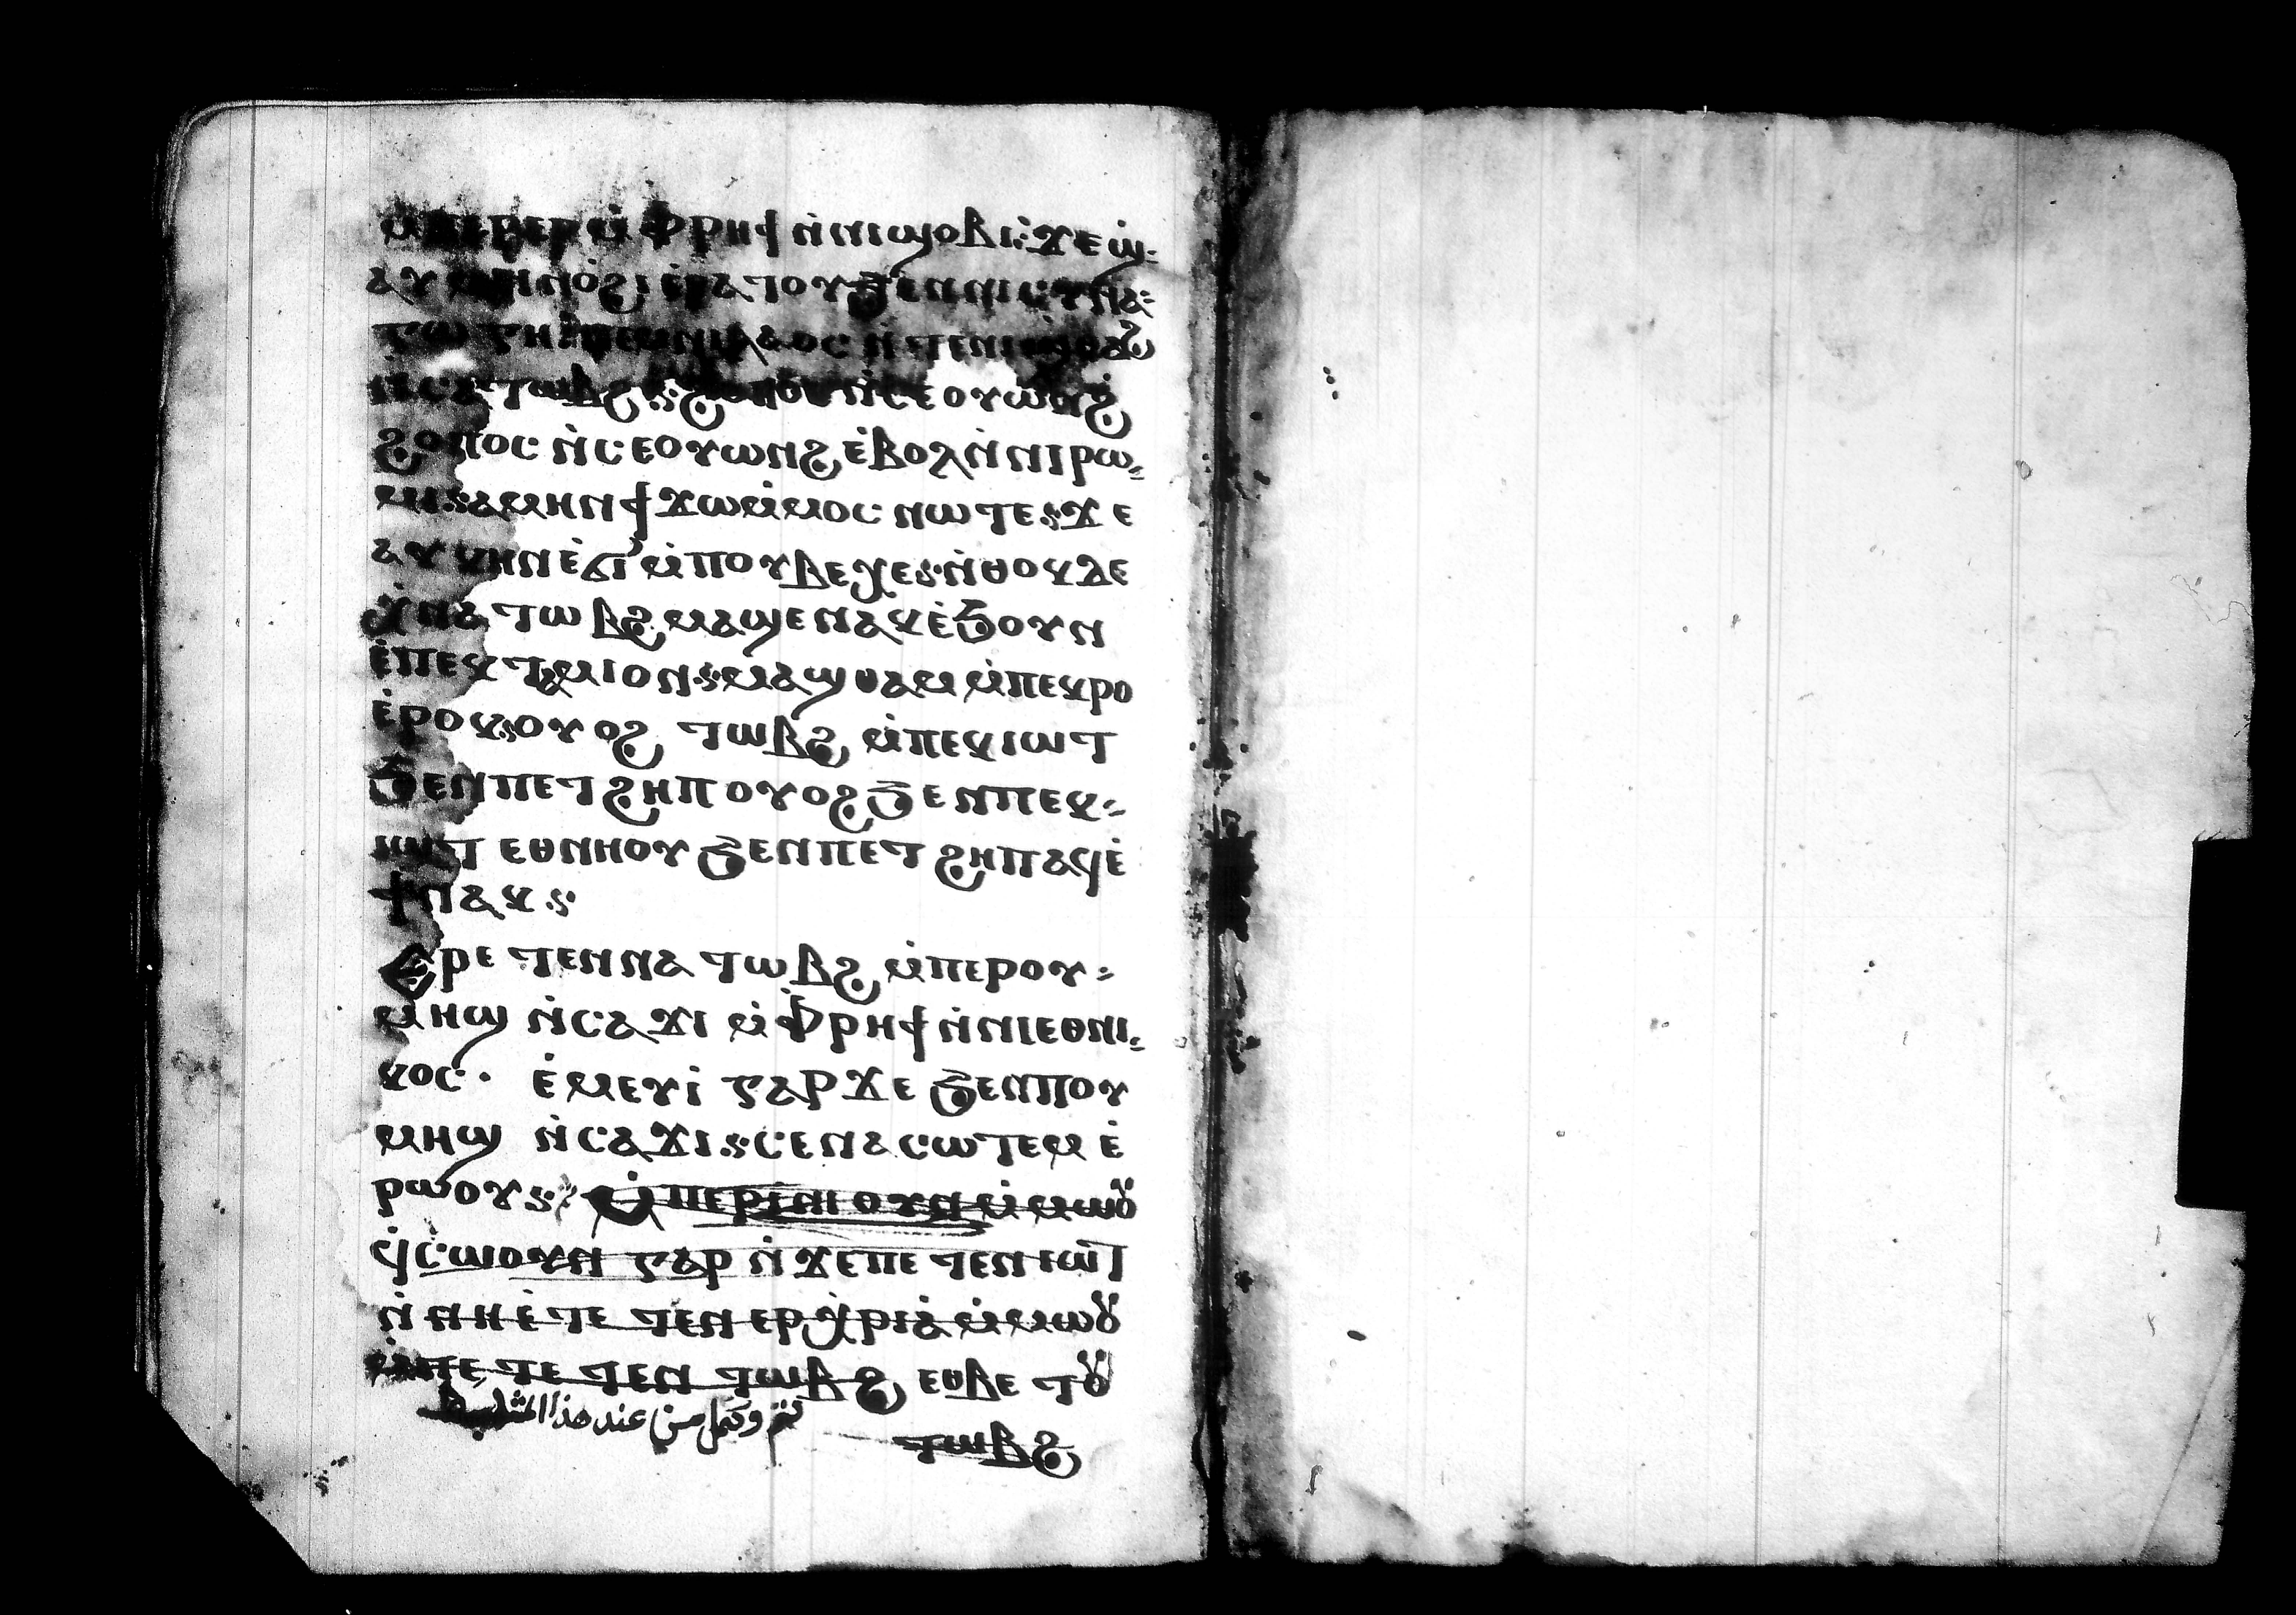 ⲙ̇ⲡⲉⲣⲉⲣ ⲙ̇ⲫⲣⲏϯ ⲛ̇ⲛⲓϣⲟⲃⲓ: ϫⲉ ϣ̇ⲁ:
ⲁⲩ ⲙⲏⲛ ⲟ̇ϩⲓ ⲉ̇ⲣⲁⲧⲟⲩ ϧⲉⲛ ⲛⲓⲥⲩⲛⲁ:
ⲅⲱⲅⲏ ⲛⲉⲙ ⲛⲓⲗⲁⲟⲥ ⲛ̇ⲧⲉ
ⲛ̇ⲥⲁⲧⲱⲃϩ ⲛ̇ⲥⲉⲟⲩⲱⲛϩ
ϩⲟⲡⲟⲥ ⲛ̇ⲥⲉⲟⲩⲱⲛϩ ⲉ̇ⲃⲟⲗ ⲛ̇ⲛⲓⲣⲱ:
ⲙⲓ: ⲁⲙⲏⲛ ϯϫⲱ ⲙ̇ⲙⲟⲥ ⲛⲱⲧⲉ: ϫⲉ
ⲁⲩⲕⲏⲛ ⲉ̇ϭⲓ ⲙ̇ⲡⲟⲩⲃⲉⲭⲉ: ⲛ̇ⲑⲟⲕ ⲇⲉ
ⲭ̇ⲛⲁⲧⲱⲃϩ ⲙⲁϣⲉ ⲛⲁⲕ ⲉ̇ϧⲟⲩⲛ
ⲉ̇ⲡⲉⲕⲧⲁⲙⲓⲟⲛ: ⲙⲁϣⲑⲁⲙ ⲙ̇ⲡⲉⲕⲣⲟ
ⲉ̇ⲣⲟⲕ: ⲟⲩⲟϩ ⲧⲱⲃϩ ⲙ̇ⲡⲉⲕⲓⲱⲧ
ϧⲉⲛ ⲡⲉⲧϩⲏⲡ ⲟⲩⲟϩ ϧⲉⲛ ⲡⲉⲕ:
ⲓⲱⲧ ⲉⲑⲛⲏⲟⲩ ϧⲉⲛ ⲡⲉⲧϩⲏⲡ ⲁϥⲉ̇
ϯⲛⲁⲕ:
Ⲉⲣⲉⲧⲉⲛⲛⲁⲧⲱⲃϩ ⲙ̇ⲡⲉⲣⲟⲩ:
ⲙⲏϣ ⲛ̇ⲥⲁϫⲓ ⲙ̇ⲫⲣⲏϯ ⲛ̇ⲛⲓⲉⲑⲛⲓ:
ⲕⲟⲥ· ⲉ̇ⲙⲉⲩⲓ̇ ⲅⲁⲣ ϫⲉ ϧⲉⲛ ⲡⲟⲩ
ⲙⲏϣ ⲛ̇ⲥⲁϫⲓ: ⲥⲉⲛⲁⲥⲱⲧⲉⲙ ⲉ̇
ⲣⲱⲟⲩ: ⲙ̇ⲡⲉⲣⲓ̇ⲛⲓ ⲟⲩⲛ ⲙ̇ⲙⲱⲟⲩ
ϥ̇ⲥⲱⲟⲩⲛ ⲅⲁⲣ ⲛ̇ϫⲉ ⲡⲉⲧⲉⲛⲓⲱⲧ
ⲛ̇ⲛⲏ ⲉ̇ⲧⲉⲧⲉⲛⲉⲣⲭ̇ⲣⲓⲁ̇ ⲙ̇ⲙⲱⲟⲩ
ⲙ̇ⲡⲉⲧⲉⲧⲉⲛⲧⲱⲃϩ ⲉⲑⲃⲉ ⲧⲟⲩ
تم وكمل من عند هذا الشطب
ⲧⲱⲃϩ